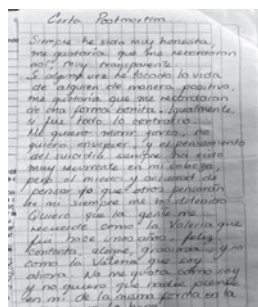 Carta Postmortem
Siempre he sido muy honesta
me gustaría que me recordaran
así, muy transparente
Si alguna vez he tocado la vida
de alguien de manera positiva,
me gustaría que me recordaran
de una forma bonita igualmente,
si fue todo lo contrario.
Me quiero morir joven, no
quiero envejecer, y el pensamiento
del suicidio siempre ha sido
muy recurrente en mi cabeza,
pero el miedo y ansiedad de
pensar lo que otros pensarán
de mi siempre me ha detenido
Quiero que la gente me
recuerde como la Valeria que
fui hace unos años, feliz,
contenta, alegre, graciosa y no
como la Valeria que soy
ahora. No me gusta como soy
y no quiero que nadie piense
en mi de la misma forma en la